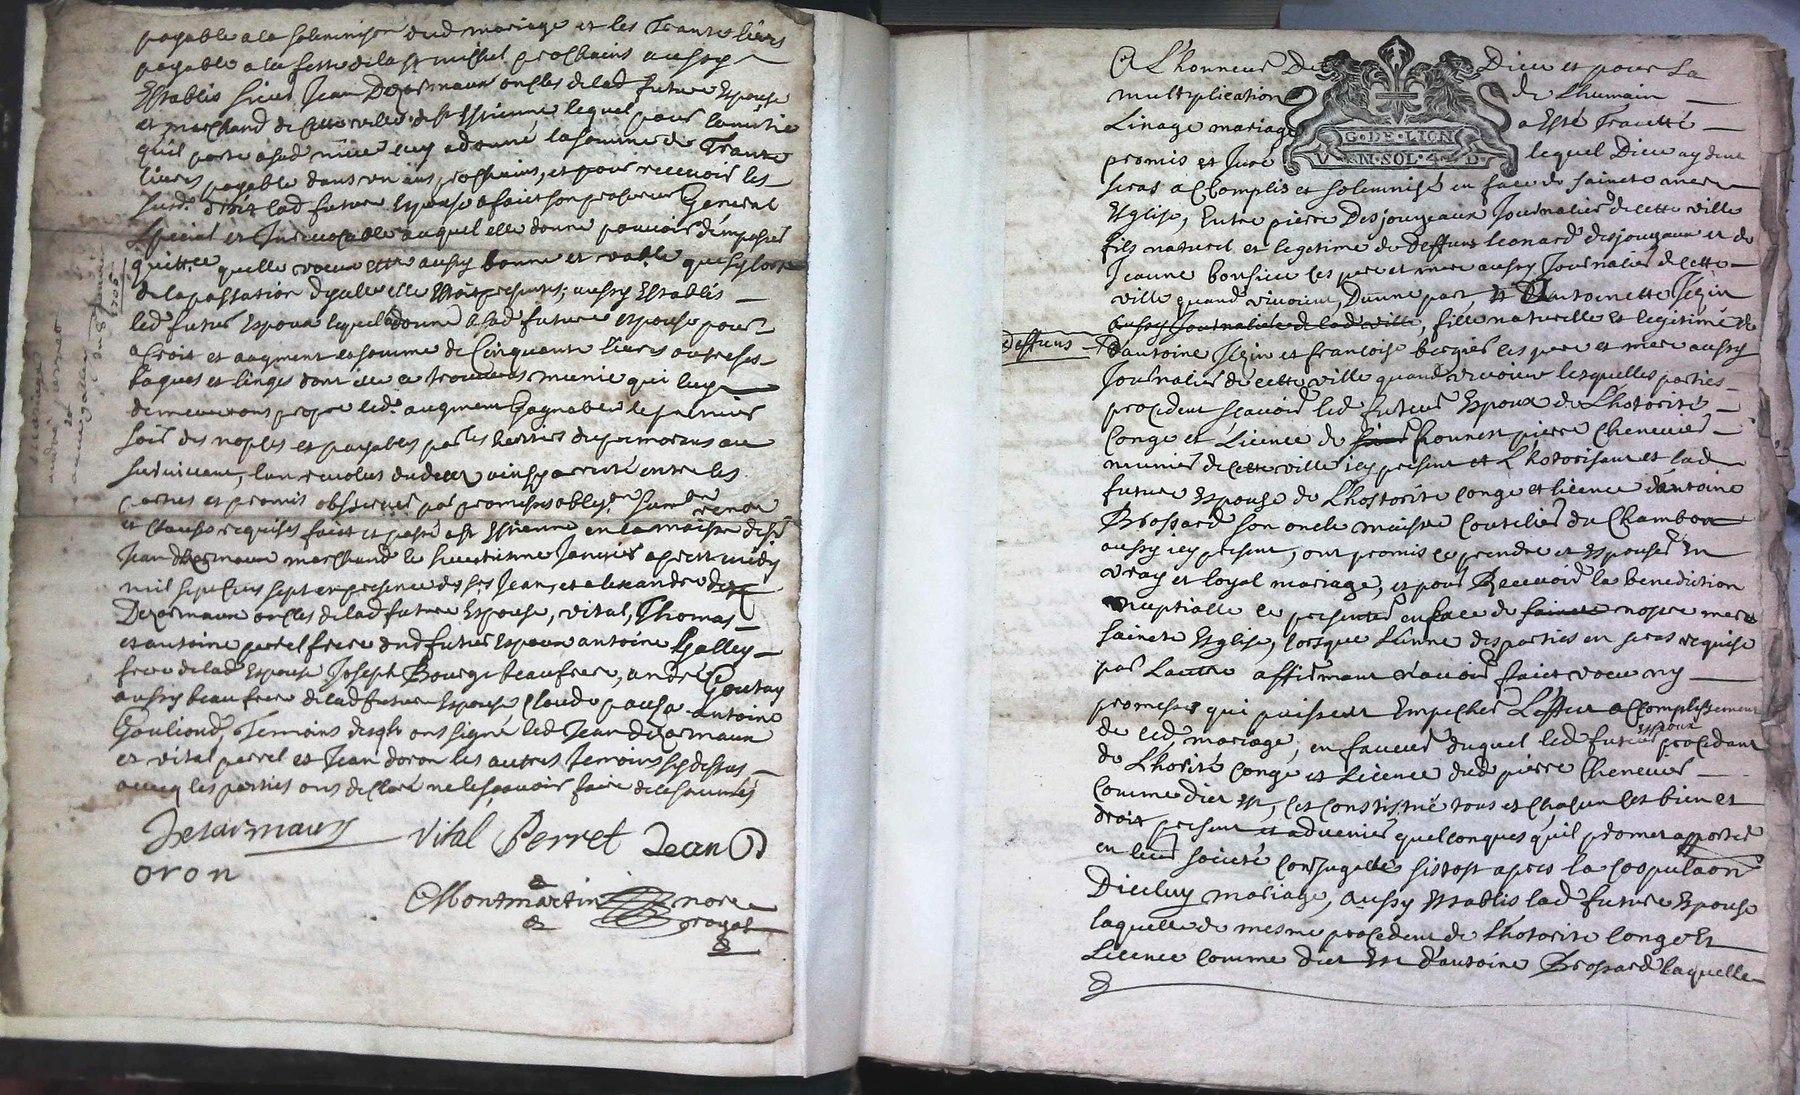 payable a la solemnison dud mariage et les Trante livres
payable a la feste de la st michel prochains aussy
Establis sieur Jean Dezarmaux oncles de lad future Espouse
et marchand de cette ville de st Estienne lequel pour lamitie
quil porte a sad niece luy a donné la somme de Trante
livres payable dans un ans prochains, et pour recevoir les
susd. droit lad future Espouse a faict son procureur General
special et Irrevocable auquel elle donne pouvoir dempasser
quittce quelle veeu estre aussy bonne et vable que sy lors
de la passation dycelle elle Estoit presente; aussy Establis
led futur Espoux lequel a donné a sad future espouse pour
acroit et augment la somme de Cinquante livres
bagues et linges dont elle se trouvera munie qui luy
demeureront propre led. augment Gagnable le premier
soir des noples et payables par les heritiers du premorant au
survivant, l'an revolus du decer ainsy arresté entre les
parties et promis observer par
et clause requises faict et passé a st Estienne en la maison dud sr
Jean Dezarmaux marchand le huictieme Janvier apres midy
mil sept cens sept en presence des srs Jean, et alexandre
Dezarmaux oncles de lad future Espouse, vital, Thomas
et antoine perrel frere dud futur Espoux antoine Galley
frere de lad Espouse Joseph Bourge beaufrere, andré Goutay
aussy beau frere de lad future Espouse Claude antoine
Gouliond, Temoins desqls ons signé led Jean dezarmaux
et vital perrel et Jean doron les autres Temoins sy dessus
avecq les parties ons declaré ne le sçavoir faire de ce sommés
Dezarmaux Vital Perret Jean D
oron
Montmartin nore
royal
Mariage
1707
A L'honneur De Dieu et pour La
multiplication de Lhumain
Linage mariage a Esté Traitté
promis et Juré lequel Dieu aydant
seras accomplis et solemnisé en face de saincte mere
Esglise, Entre pierre Desjouzeaux Journalier de cette ville
fils naturel et legetime de deffuns leonard desjouzeaux et de
Jeanne bonfiere ses pere et mere aussy Journalier de cette
ville quand vivoient, Dunne part, Et Antoinette Jezin
aussy Journaliere de lad ville, fille naturelle et legitime de
deffuns
d'antoine Jezin et françoise bergier ses pere et mere aussy
Journalier de cette ville quand vivoient lesquelles parties
procedent sçavoir led futeur Espoux de L'hotorité
Conge et Licence de honnest pierre Chenevier
munier de cette ville icy present et L'hotorisant et lad
future Espouse de L'hostorite conge et licence dantoine
Brossard son oncle maistre Coutelier du Chambon
aussy icy present, ont promis ce prendre et Espouser En
vray et loyal mariage, et pour Recevoir la benediction
nuptialle ce presenter en face de saincte nostre mere
saincte Esglise, lorsque L'unne des parties en seras requise
par Lautre affirmant n'avoir faict voeu ny
promesse qui puissent Empecher L'effect accomplissement
de ced mariage, en faveur duquel led futeur Espoux procedant
de L'horité Conge et Licence dud pierre Chenevier
Comme dict Est, ses constistué tous et chacun ses bien et
droit present et advenier quelconques quil promet apporter
en leur societé Conjugalle sistost apres la Coppulaon
Diceluy mariage, aussy Establis lad future Espouse
laquelle de mesme procedent de L'hotorite Conge et
Licence Comme dict Est d'antoine Brossard laquelle
G·DE·LION
V·EN·SOL·4·D·